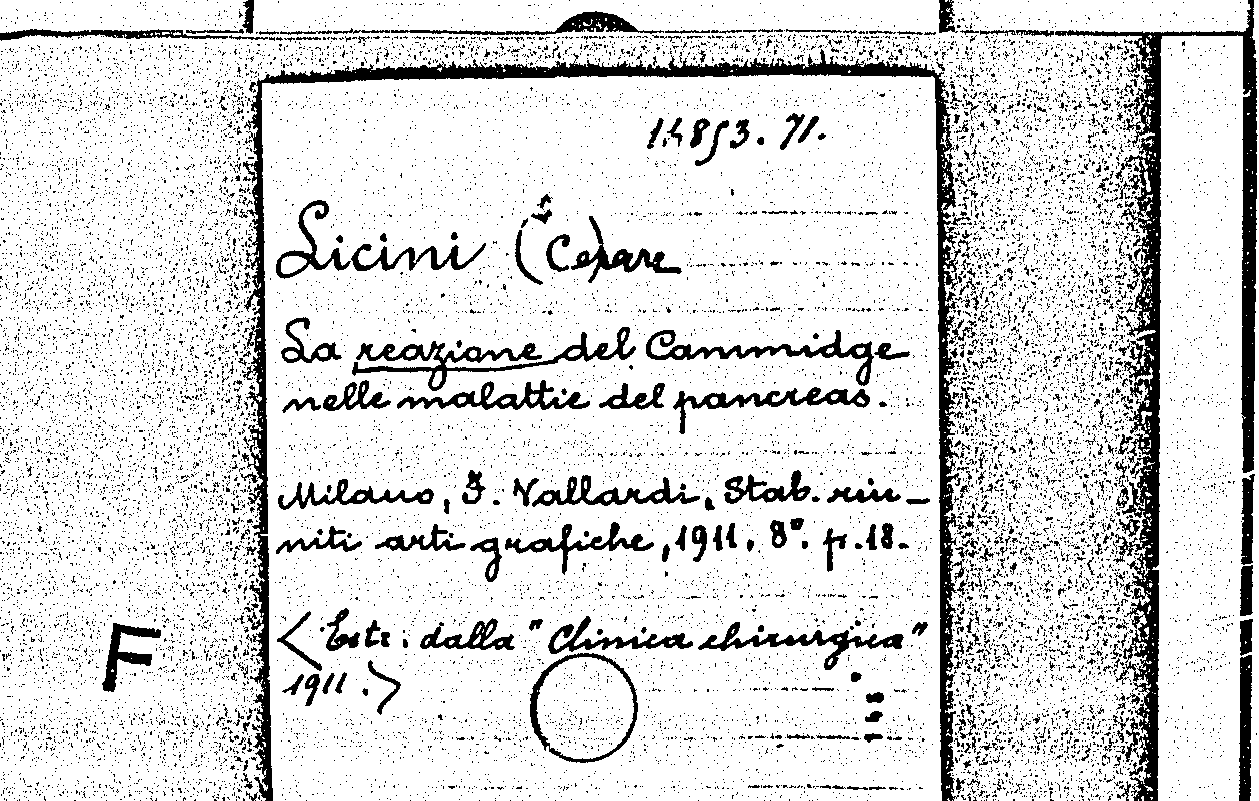 14853.71.
Licini (Cesare)
La reazione del Cammidge
nelle malattie del pancreas.
Milano, F. Vallardi, Stab. riu-
niti arti grafiche, 1911, 8°. p. 18.
<Estr. dalla "Clinica chirurgica"
1911.>
F